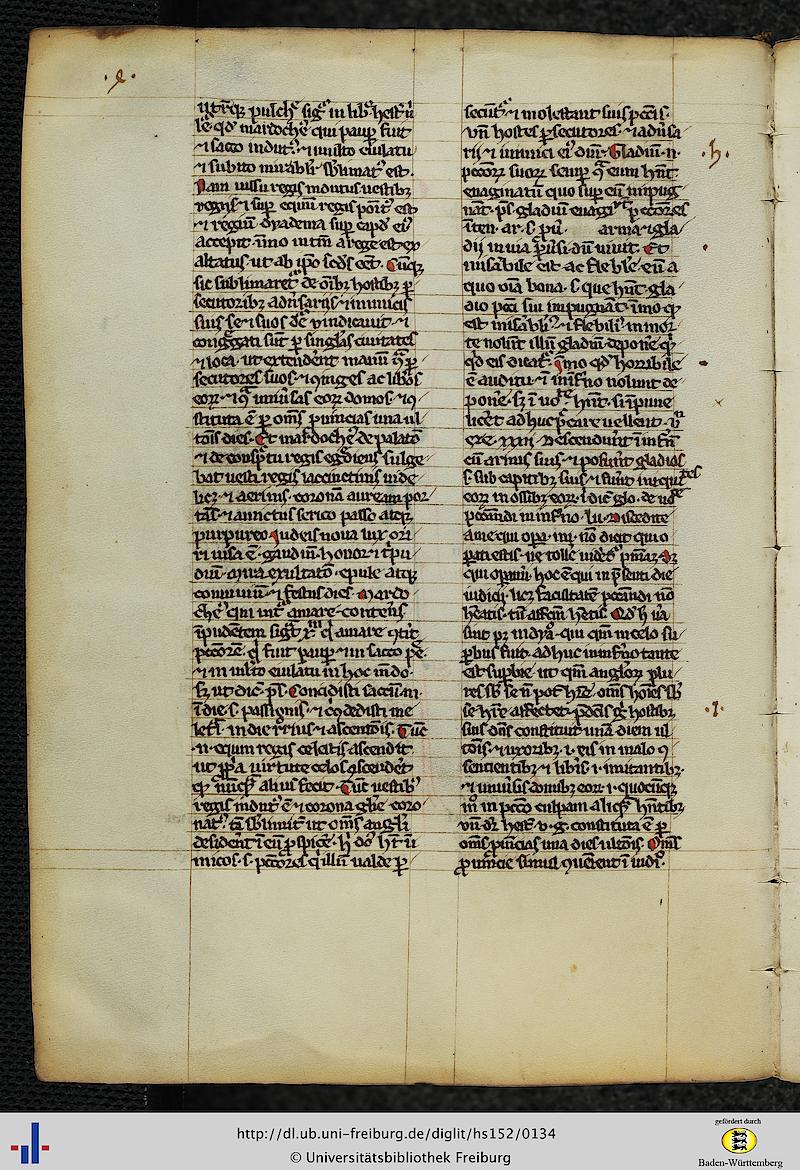 ·g·
utrūqꝫ pulchͬ sigͬ in libͦ hestͬ u
le qd mardocheꝰ qui paup fuit
⁊ sacco indutꝰ ⁊ in eiulatu
⁊ subito mirabilʼr sb'limatꝰ est.
Nam iussu regis indutus uestibꝫ
regiis ⁊ sup equū regis est
⁊ regiū dyadema sup capd eiꝰ
accepit. īmo intm̄ a rege est ex
altatus ut ab ipo scds eēt. Cūqꝫ
sic sublimaretͬ de oībꝫ hostibꝫ ꝑ
secutoribꝫ aduʼsariis ⁊ inimicis
suis se ⁊ suos vindicauit ⁊
congͤgati sūt ꝑ singlas ciuitates
⁊ loca ut extenderēt manū ꝑ
secutores suos ⁊ ac libos
eoꝝ ⁊ uniūsas eoꝝ domos
stituta ē ꝑ oms puincias una ul
tōis dies. Et mardocheꝰ de palato
⁊ de conspctu regis egͤdiens fulge
bat uesti regis iaccinctinis uide
licꝫ ⁊ aerinis. coronā auream por
tās ⁊ amictus serico pallio atqꝫ
purpureo. Judeis noua lux ori
ri uisa ē. gaudiū honor ⁊ tpu
diū. exultato epule atqꝫ
conuiuiū ⁊ festus dies. Mardo
cheꝰ qui intͬ amare conteris
īpudētem sigͬt amare
pctorē. q fuit paup ⁊ in sacco pe
⁊ in eiulatu in hoc mdo.
sꝫ ut dicͭ ps. Concidisti saccū m.
ī die s. passionis ⁊ cͥcūdedisti me
leti. in die rr̄ius ⁊ ascenōis. Tūc
n. equm regis celestis ascendit
ut uirtute celos ascenderet
qd nūcqͣ alius fecit. Tūc uestibꝫ
regis indutꝰ ē ⁊ corona gle coro
natꝰ. sb'limitͭ ut oms angli
desiderent ī eū ꝑspicē. h ds hꝫ ī
micos. s. pctores q illū ualde ꝑ
secūtͬ ⁊ molestant suis pctis.
vn hostes ꝑsecutores ⁊ aduʼsa
rii ⁊ inimici eiꝰ dnr. Gladiū n.
pctorꝫ suorꝫ semp eum hnt
euaginatū quo sup eū impug
nāt. ps. gladiū euagi. pctores
itē. ar. s. pu. arma ⁊ gla
dii in uia dū uiuit. Et
misabile est ac flebile. eū a
quo oīa bona. s. que hnt gla
dio pcti sui impugnāt. imo q
est misabliꝰ ⁊ flebiliꝰ in mor
te nolūt illū gladiū deponē q
qd eis dicatͬ. Imo qd horribile
ē auditu ⁊ infno nolunt de
ponē. sꝫ ī uoltͤ hnt. si īpune
licēt adhuc pctare uellent. vn
eze. xxxii. Descendunt ī infn
cū armis suis ⁊ posuerūt gladios
s. sub capitibꝫ suis ⁊ fuūt iniqͥtates
eoꝝ in ossibꝫ eoꝝ. i. dic glo. de uolte
pctandi in infno. lu. Discedite
a me qui opa. ini. nō dicit qui o
pati estis. ne tolle uidet pniaꝫ. sꝫ
qui opam. hoc ē qui in psenti die
iudicii. licꝫ facultatē pctandi nō
heatis. tn affcm hetis. Qd h ita
sint pꝫ in dya. qui qm in celo su
ꝑbus fuit. adhuc in infno tante
est supbie. ut qm angloꝝ plu
res sb se n pot hre. oms hoies sb
se hre affectet. pdcis g hostibꝫ
suis dns constituit unā diem ul
tōis ⁊ uxoribꝫ. i. eis in malo 9
sencientibꝫ ⁊ libis. i. imitantibꝫ.
⁊ uniūsis domibꝫ eoꝝ. i. quocūqꝫ
mo in pcto culpam aliqͣ hntibꝫ
vn dr hest. v. g. constituta ē ꝑ
oms puincias una dies ultōis. Oms
puincie simul querent ī iudi.
·h·
·i·
http://dl.ub.uni-freiburg.de/diglit/hs152/0134
© Universitätsbibliothek Freiburg
gefördert durch
Baden-Württemberg